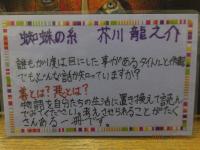 蜘蛛の糸　芥川 龍之介
誰もが1度は目にした事があるタイトルと作者
でもどんな話か知っていますか?
善とは? 悪とは?
物語を自分たちの生活に置き換えて読んで
みてください。考えさせられることがたく
さんある一冊です。